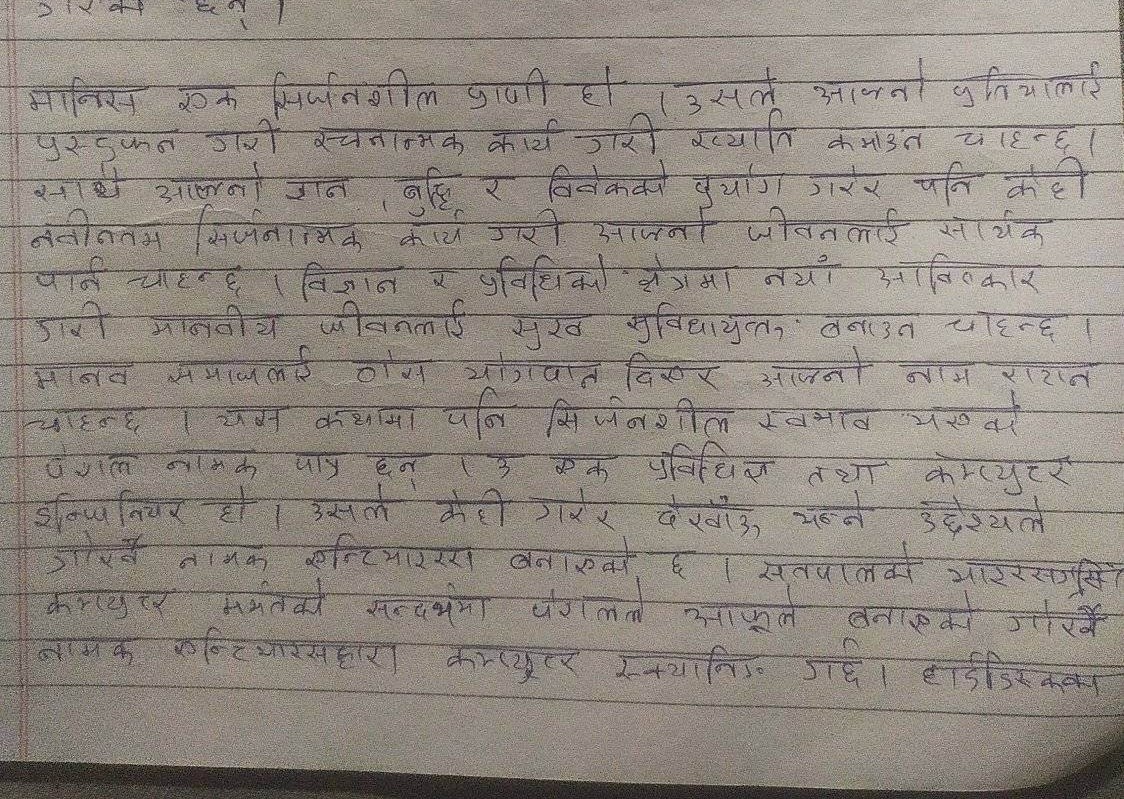 गरेका छन् ।
मानिस एक सिर्जनशील प्राणी हो । उसले आफ्नो प्रतिभालाई
प्रस्फुटन गरी रचनात्मक कार्य गरी ख्याति कमाउन चाहन्छ ।
साथै आफ्नो ज्ञान, बुद्धि र विवेकको प्रयोग गरेर पनि केही
नवीनतम सिर्जनात्मक कार्य गरी आफ्नो जीवनलाई सार्थक
पार्न चाहन्छ । विज्ञान र प्रविधिको क्षेत्रमा नयाँ आविष्कार
गरी मानवीय जीवनलाई सुख सुविधायुक्त बनाउन चाहन्छ ।
मानव समाजलाई ठोस योगदान दिएर आफ्नो नाम राख्न
चाहन्छ । यस कथामा पनि सिर्जनशील स्वभाव भएको
पंगाल नामक पात्र छन् । उ एक प्रविधिज्ञ तथा कम्प्युटर
इन्जिनियर हो । उसले केही गरेर देखाँऊ भन्ने उद्देश्यले
गोर्खे नामक एन्टिभाइरस बनाएको छ । सतपालको भाइरसग्रसित
कम्प्युटर मर्मतको सन्दर्भमा पंगालले आफूले बनाएको गोर्खे
नामक एन्टिभारसद्वारा कम्प्युटर स्क्यानिङ गर्छ । हार्डडिस्कका